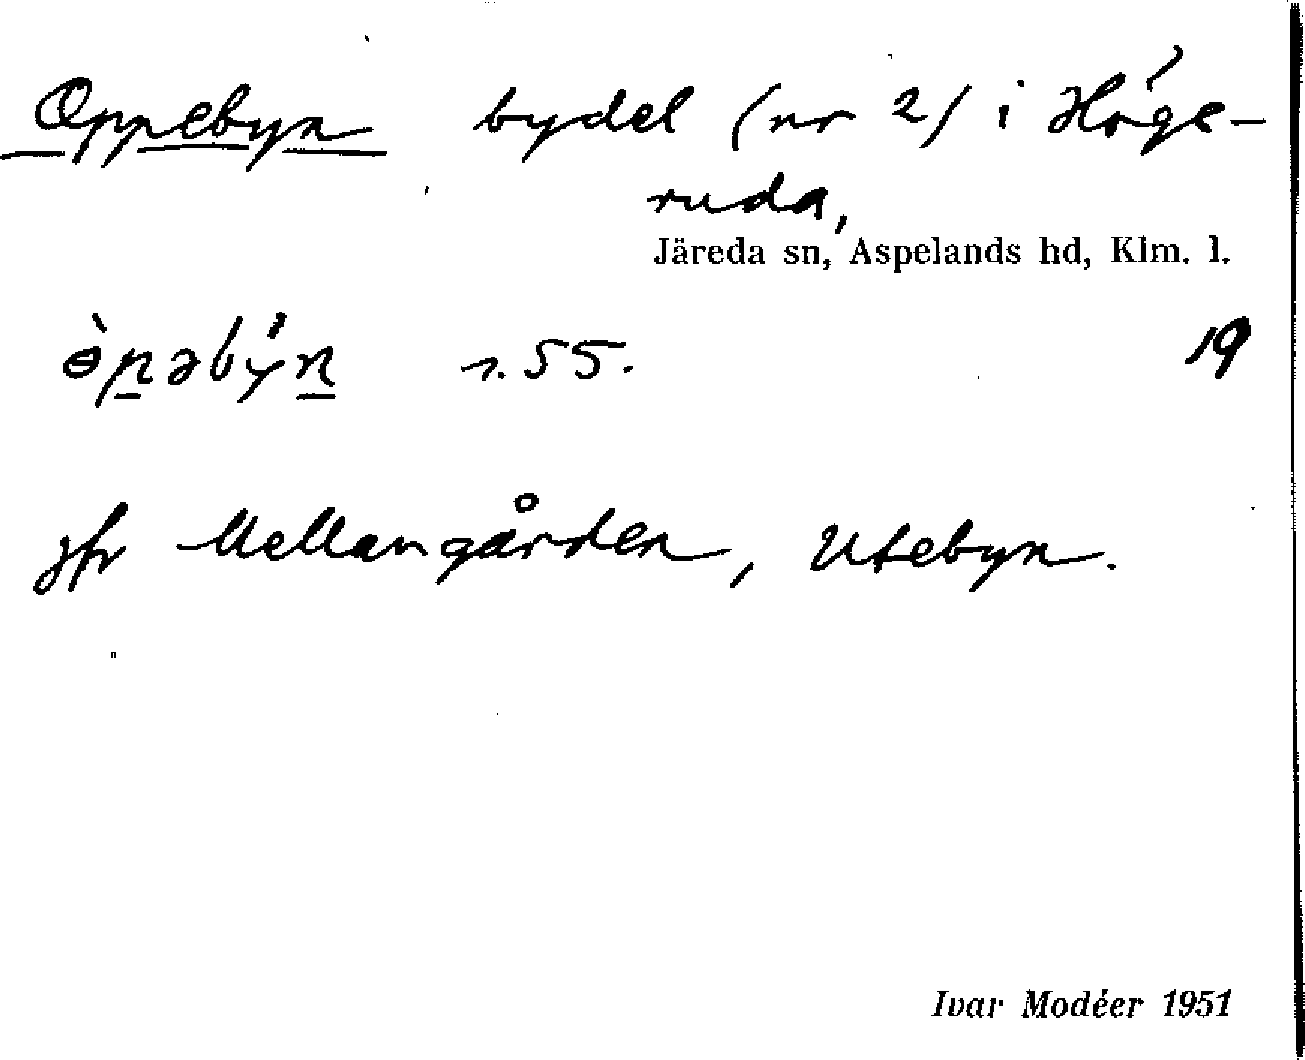 Oppebyn bydel (nr 2) i Höge-
ruda,
Järeda sn, Aspelands hd, Klm. l.
ɵ̀pəby̍n s. 55. 19
jfr Mellangården, Utebyn.
Ivar Modéer 1951